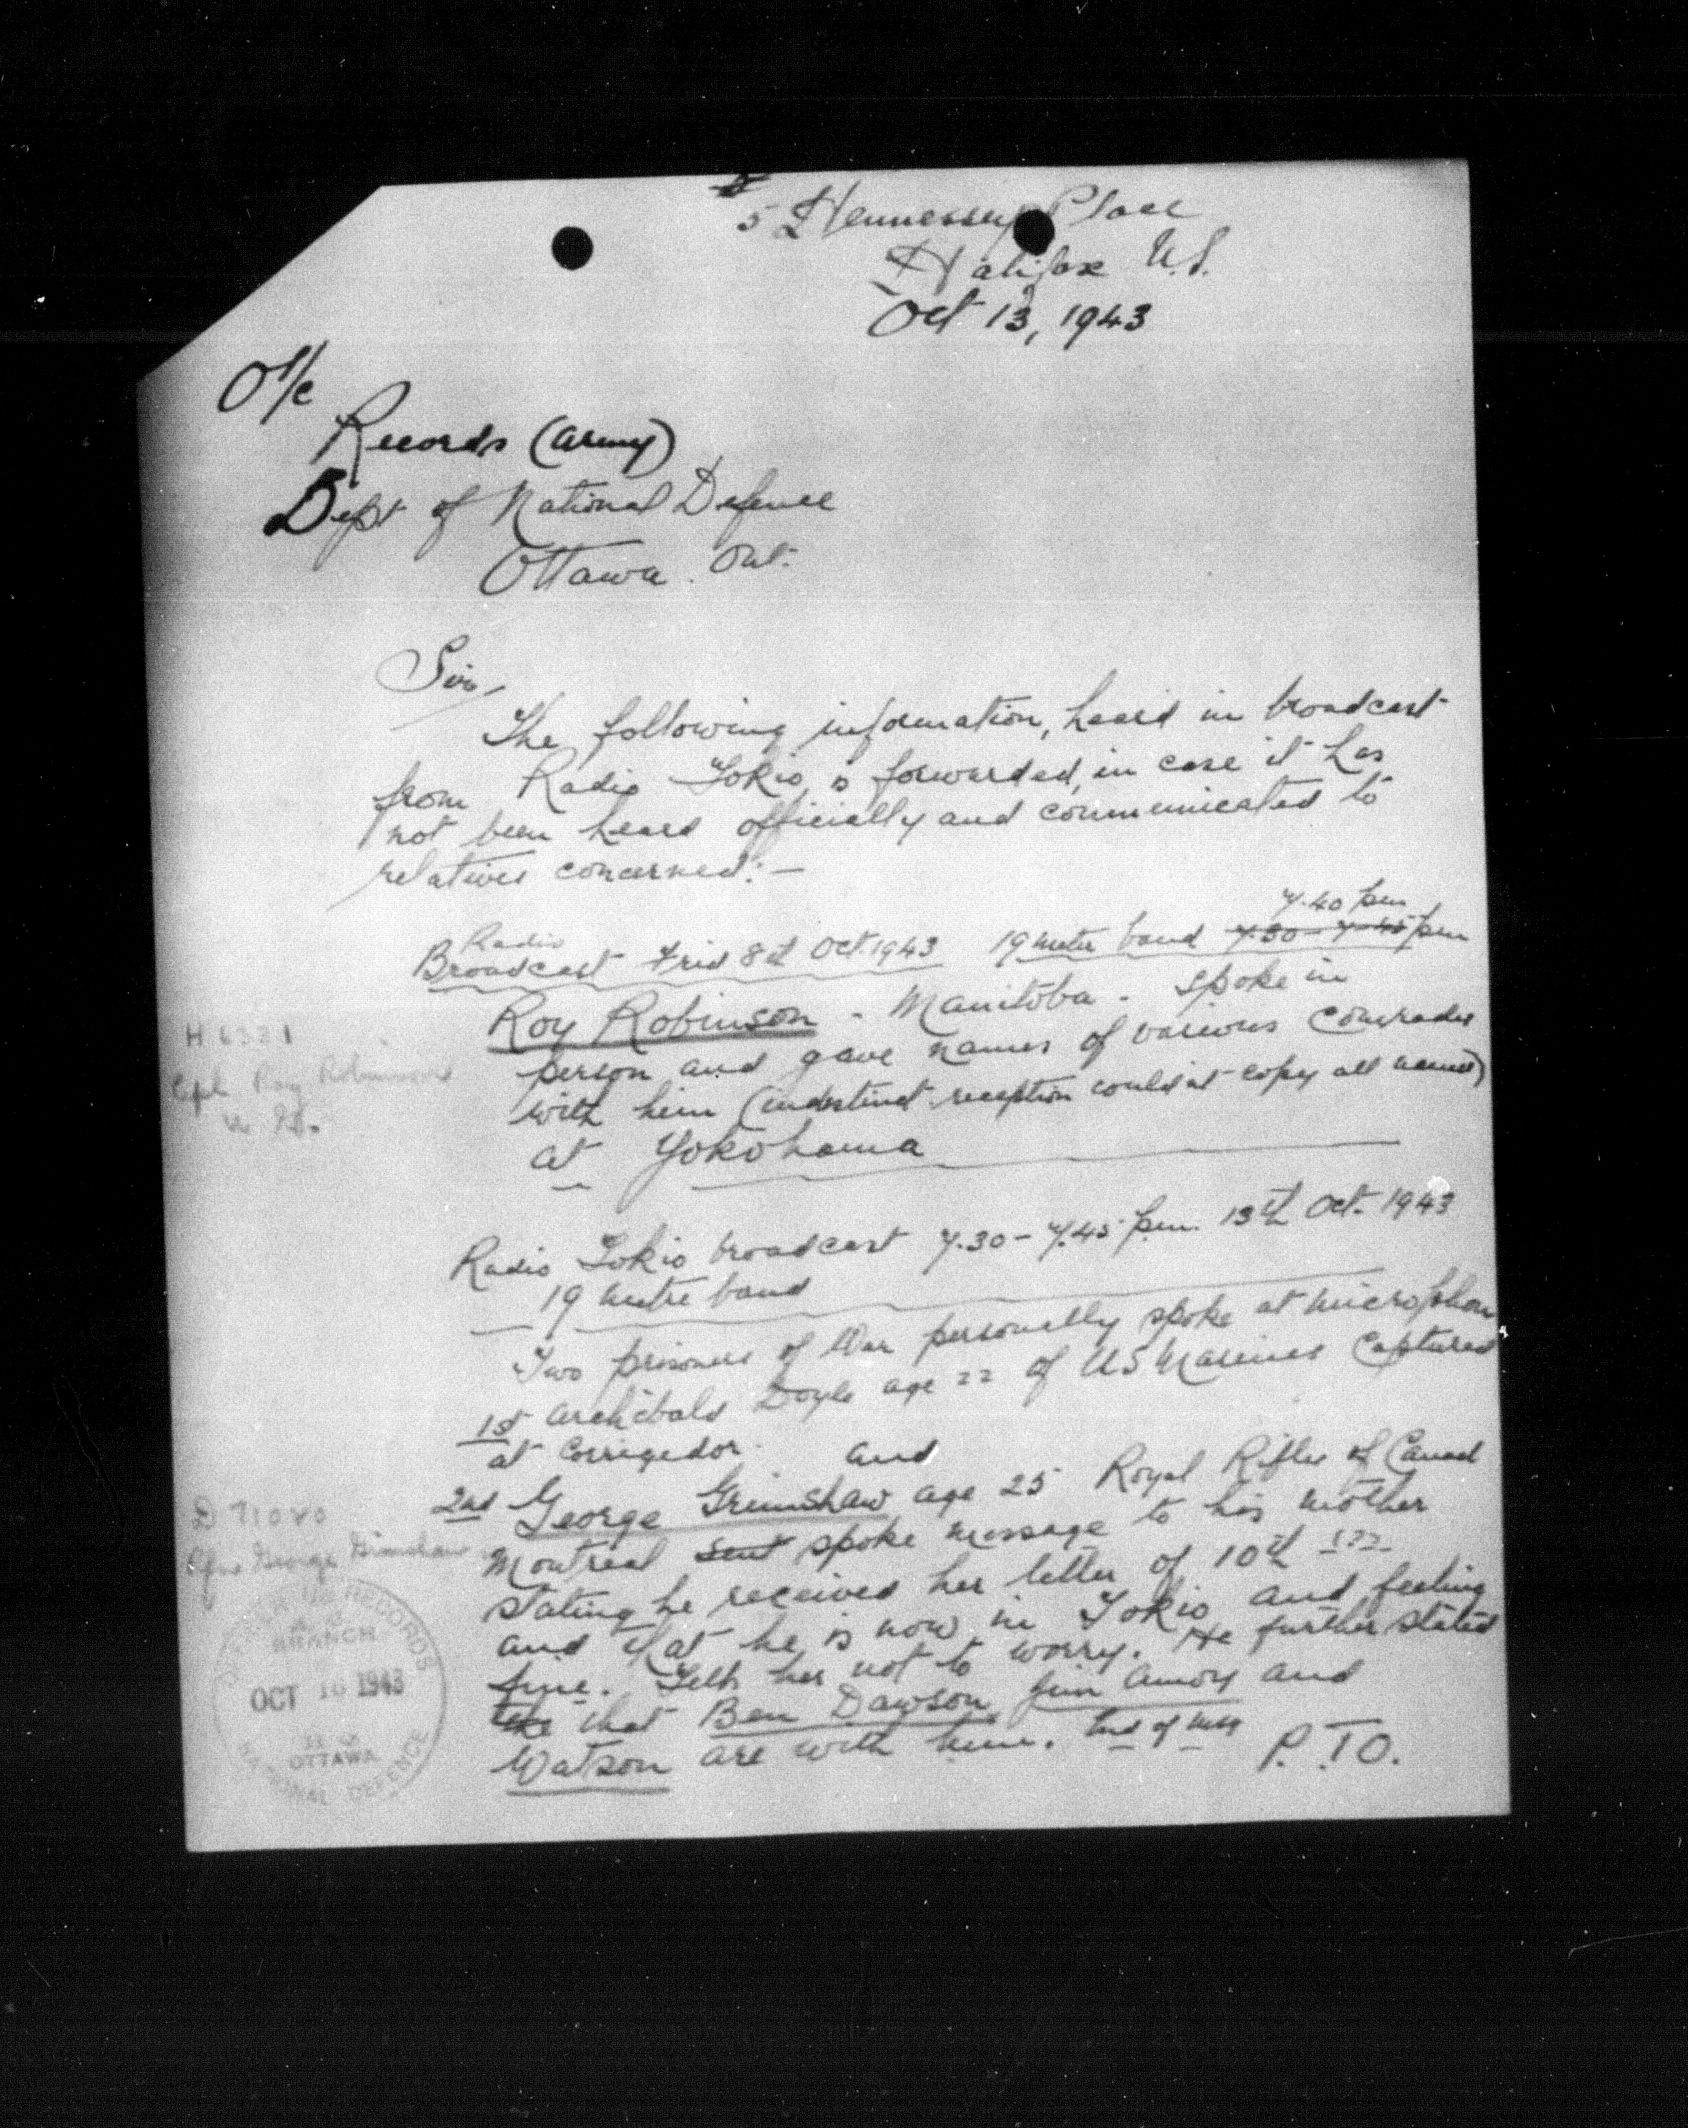 5 Hennessey Place
Halifax N.S.
Oct 13, 1943
O/c
Records (Army)
Dept of National Defence
Ottawa. Ont.
Sir,
The following information, heard in broadcast
from Radio Tokio, is forwarded, in case it has
not been heard officially and communicated to
relatives concerned:—
7.40 pm
Radio
Broadcast Frid 8th Oct 1943 19 metre band 7.30 - 7.45 pm
Roy Robinson - Manitoba - spoke in
person and gave names of various comrades
with him (indistinct reception couldn't copy all names)
at Yokohama
H 6321
Cpl Roy Robinson
W. G.
Radio Tokio broadcast 7.30 - 7.45 p.m. 13th Oct. 1943
19 metre band
Two prisoners of War personally spoke at microphone
1st Archibald Doyle age 22 of US Marines captured
at Corregedor. and
2nd George Grimshaw age 25 Royal Rifles of Canad
Montreal sent spoke message to his mother
stating he received her letter of 10th ???
and that he is now in Tokio and feeling
fine. Tells her not to worry. He further stated
that Ben Dawson, Jim Amoy and
Watson are with him. End of msg
P.T.O.
D 71040
Rfn George Grimshaw
RECORDS
BRANCH
OCT 16 1943
OTTAWA
NATIONAL DEFENCE